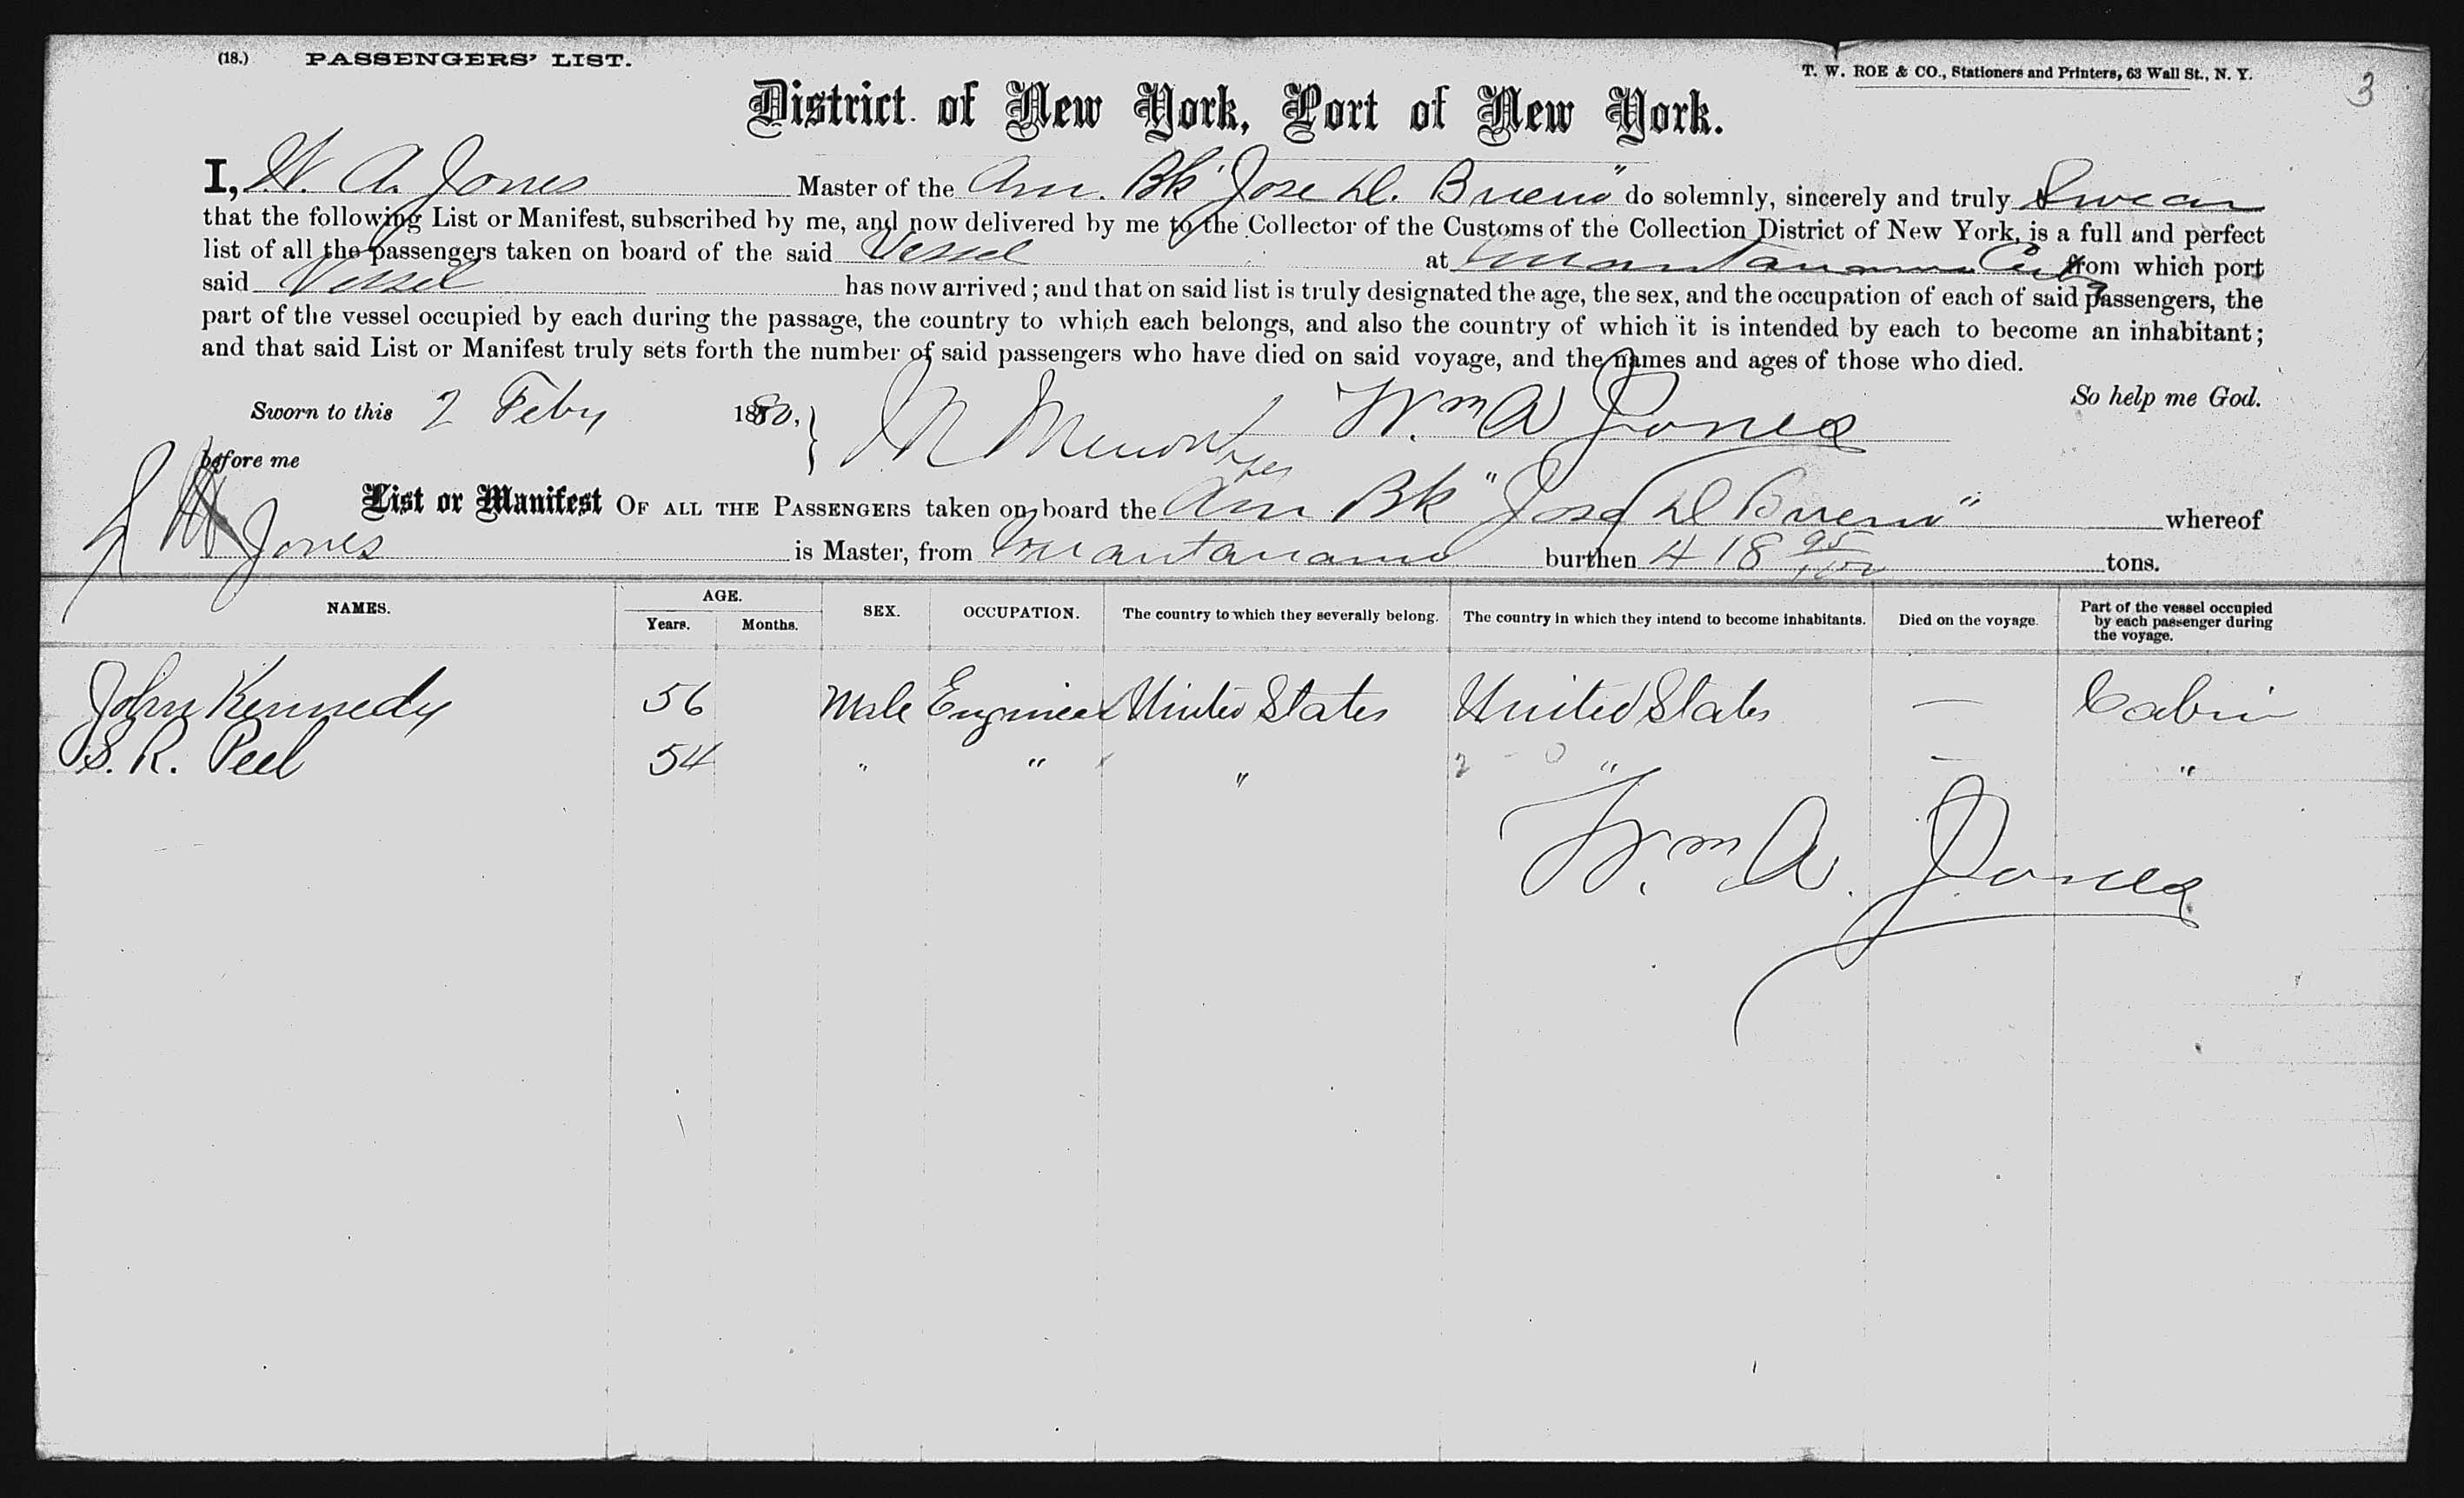 (18.) PASSENGERS' LIST.
T. W. ROE & CO., Stationers and Printers, 63 Wall St., N. Y.
3
District of New York, Port of New York.
I, W. A. Jones Master of the Am. Bk "Jose D. Bueno" do solemnly, sincerely and truly Swear
that the following List or Manifest, subscribed by me, and now delivered by me to the Collector of the Customs of the Collection District of New York, is a full and perfect
list of all the passengers taken on board of the said Vessel at Guantanamo Cuba from which port
said Vessel has now arrived; and that on said list is truly designated the age, the sex, and the occupation of each of said passengers, the
part of the vessel occupied by each during the passage, the country to which each belongs, and also the country of which it is intended by each to become an inhabitant;
and that said List or Manifest truly sets forth the number of said passengers who have died on said voyage, and the names and ages of those who died.
So help me God.
Sworn to this 2 Feby 1880, Wm A Jones
before me
List or Manifest OF ALL THE PASSENGERS taken on board the Am Bk "Jose D Bueno" whereof
Jones is Master, from Guantanamo burthen 418 95/100 tons.
NAMES. AGE. Years. Months. SEX. OCCUPATION. The country to which they severally belong. The country in which they intend to become inhabitants. Died on the voyage. Part of the vessel occupied by each passenger during the voyage.
John Kennedy 56 Male Engineer United States United States — Cabin
S. R. Peel 54 " " " " — "
Wm A. Jones